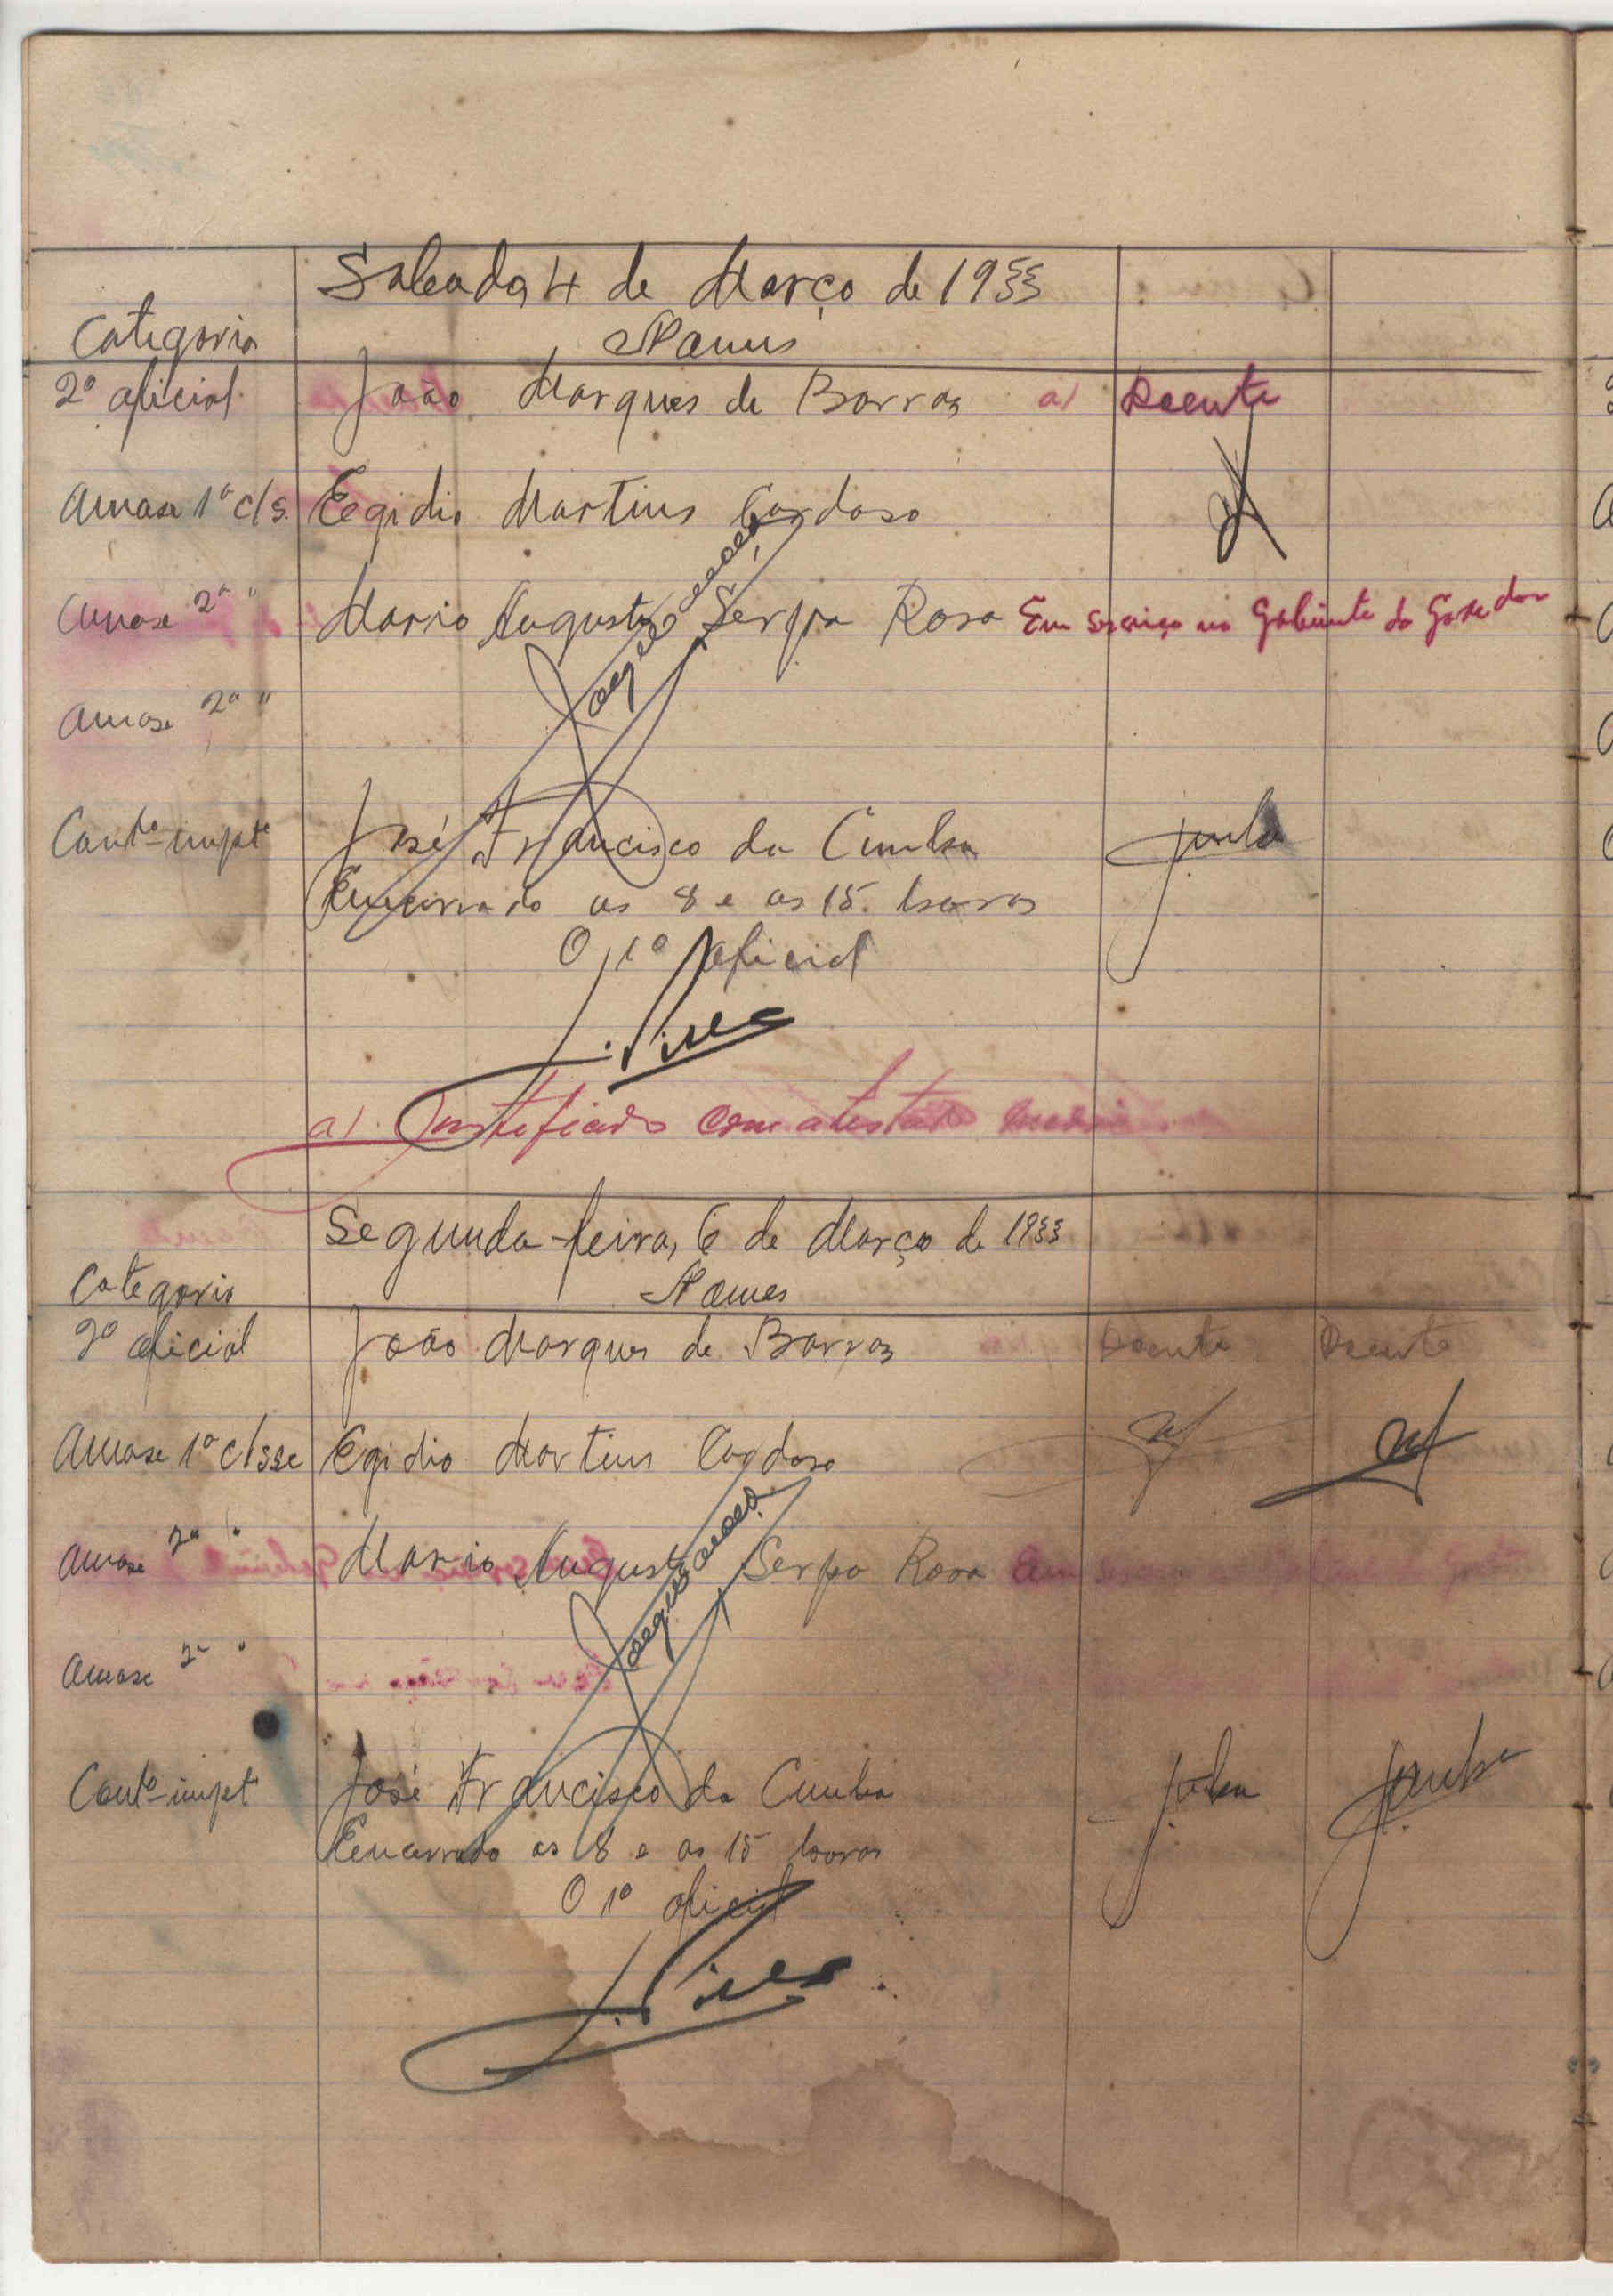 Sabado, 4 de Março de 1933
Categoria Nomes
2º oficial João Marques de Barros a) Doente
Amase 1ª cls. Egidio Martins Cardoso
Amase 2ª " Mario Augusto Serpa Rosa Em serviço no Gabinete do Govedor
Amase 2ª "
Contº impte José Francisco da Cunha JCunha
Encerrado as 8 e as 15 horas
O 1º oficial
J. Pires
a) Justificado com atestado medico
Segunda-feira, 6 de Março de 1933
Categoria Nomes
2º oficial João Marques de Barros Doente Doente
Amase 1ª classe Egidio Martins Cardoso
Amase 2ª " Mario Augusto Serpa Rosa Em
Amase 2ª "
Contº impt José Francisco da Cunha JCunha JCunha
Encerrado as 8 e as 15 horas
O 1º oficial
J. Pires